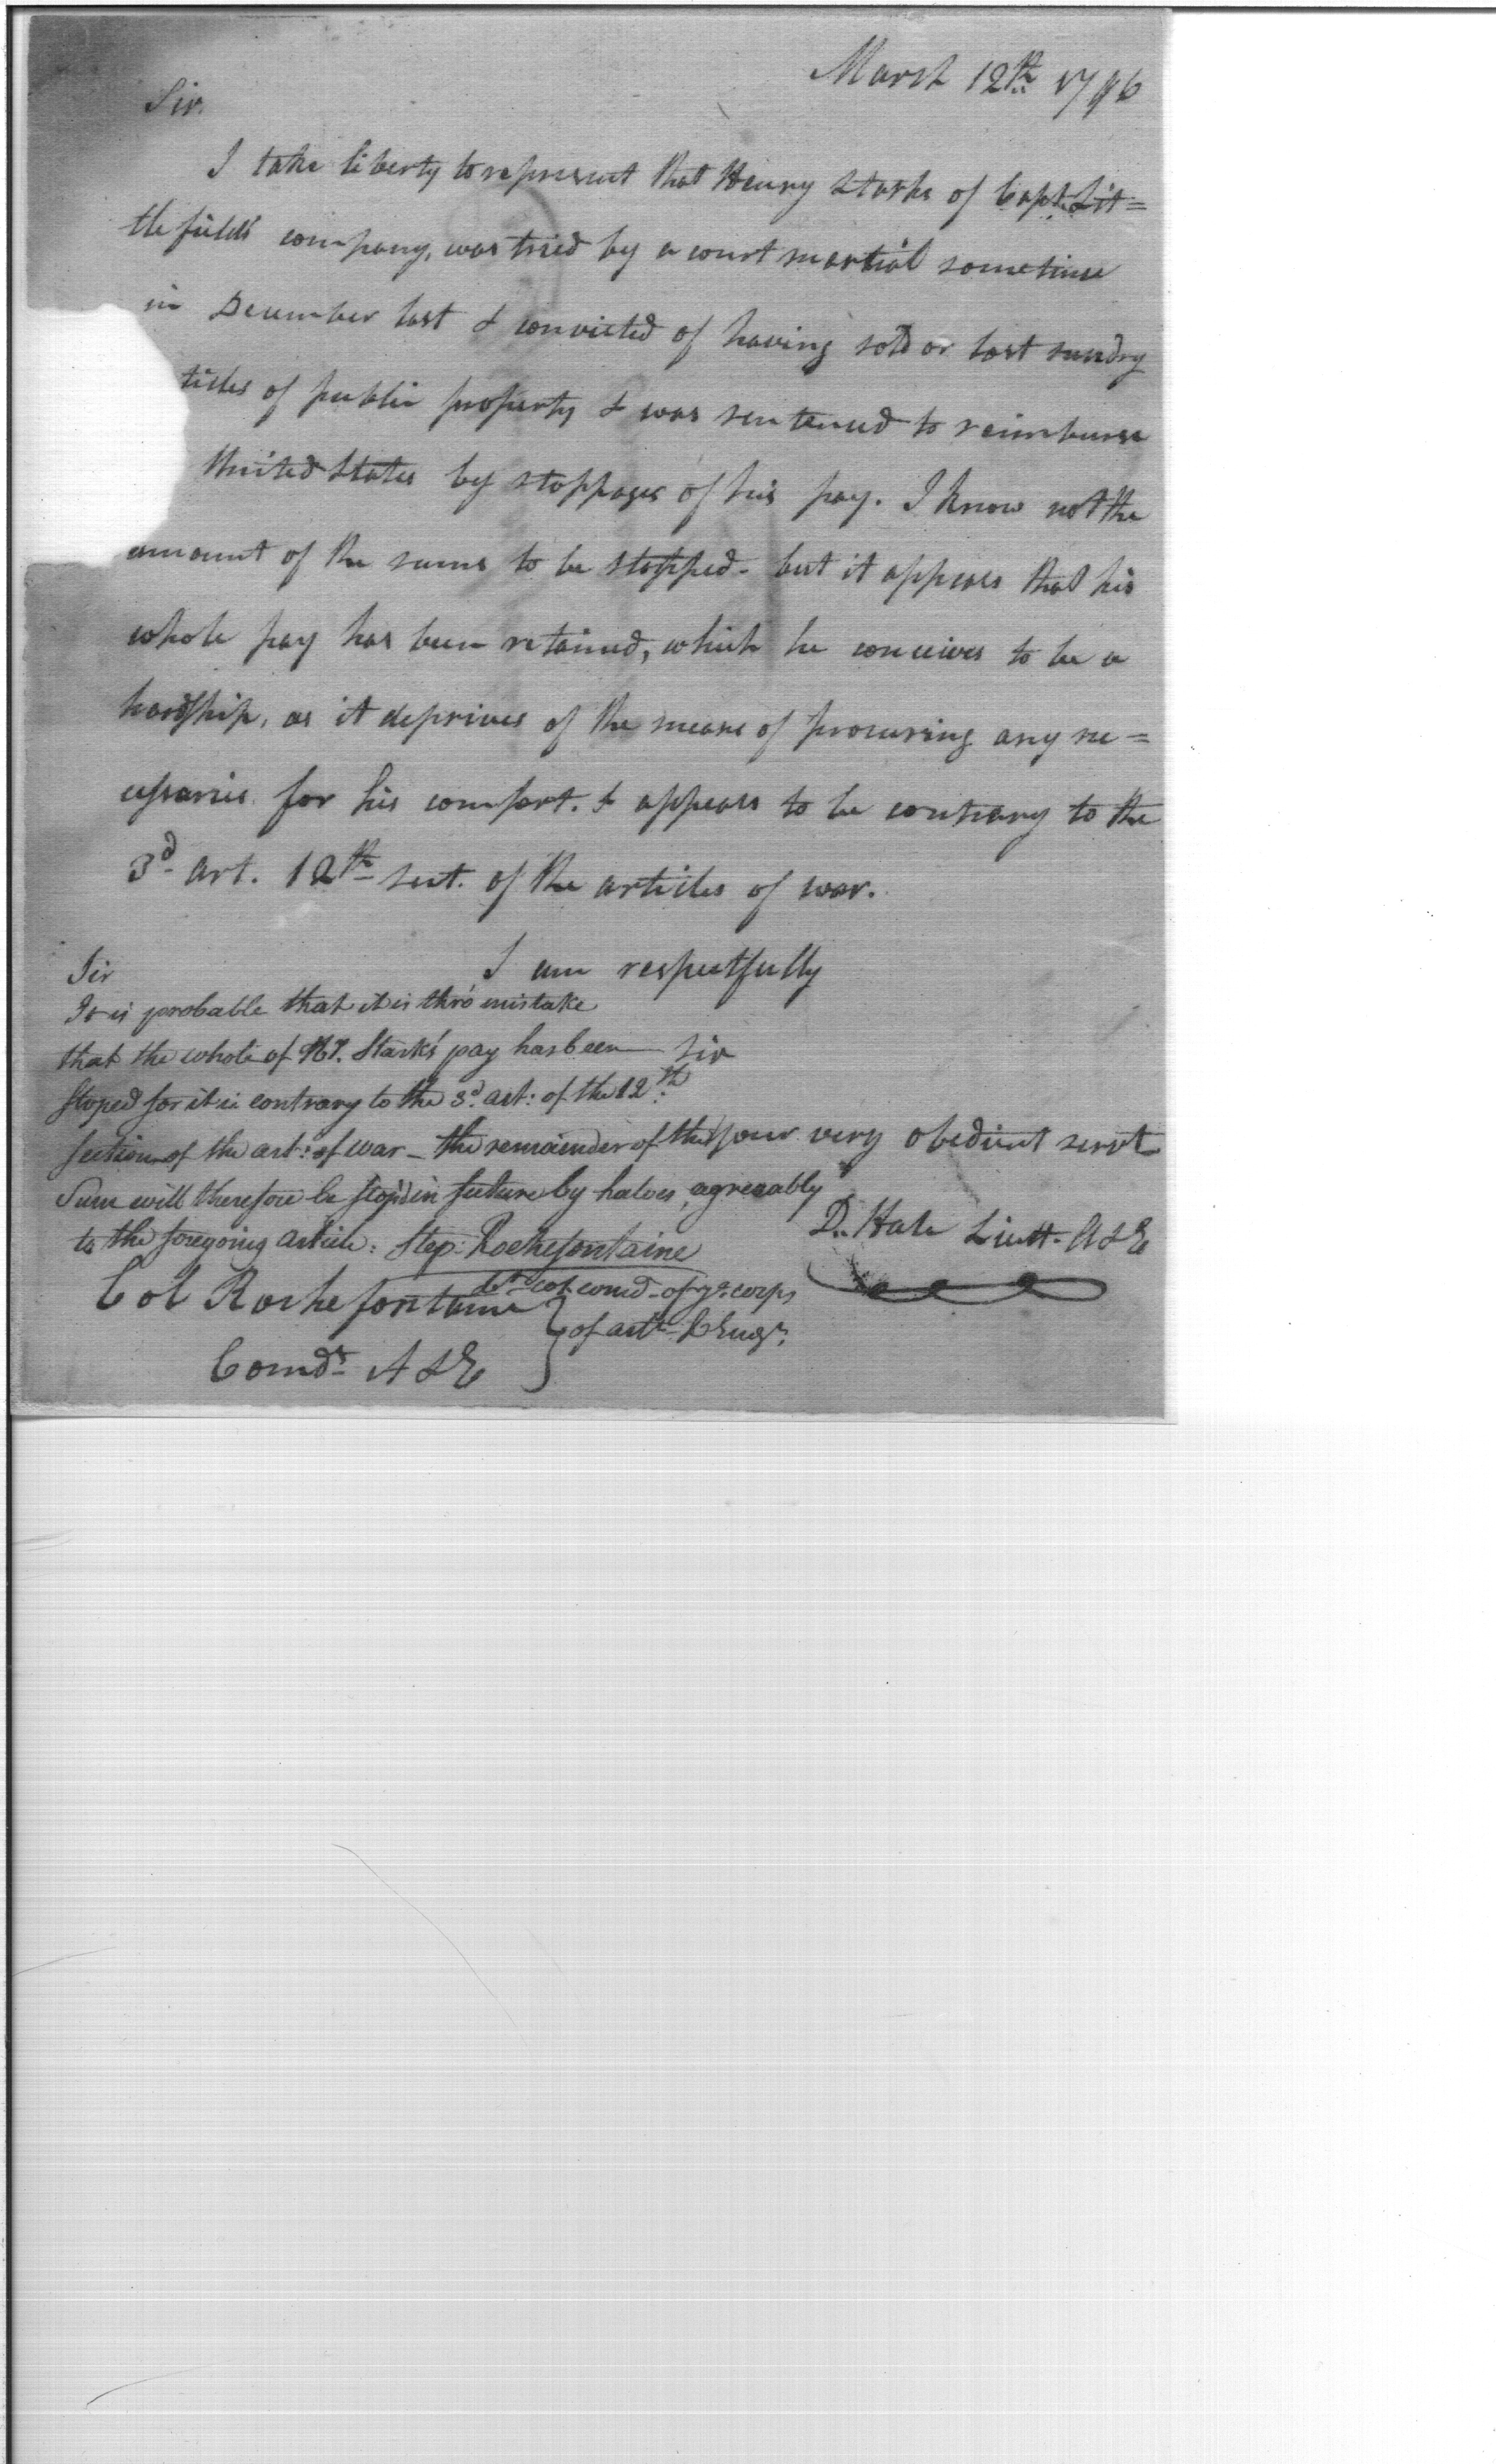 March 12th 1796
Sir.
I take liberty to represent that Henry Starks of Capt. Lit=
tlefield's company, was tried by a court martial sometime
in December last & convicted of having sold or lost sundry
ticles of public property & was sentenced to reimburse
United States by stoppages of his pay. I know not the
amount of the sums to be stopped - but it appears that his
whole pay has been retained, which he conceives to be a
hardship, as it deprives of the means of procuring any ne=
cessaries for his comfort. & appears to be contrary to the
3d art. 12th sect. of the articles of war.
I am respectfully
Sir
your very obedient servt
D. Hale Lieutt. A&E
Col Rochefontaine
Comdt A&E
Sir
It is probable that it is thro' mistake
that the whole of Stark's pay has been
stoped for it is contrary to the 3d. art: of the 12th.
section of the art: of war - the remainder of the
Sum will therefore be stop'd in future by halves, agreeably
to the foregoing article: Step: Rochefontaine
Lt. col. comd. of ye. corps
of arty. & Engrs.